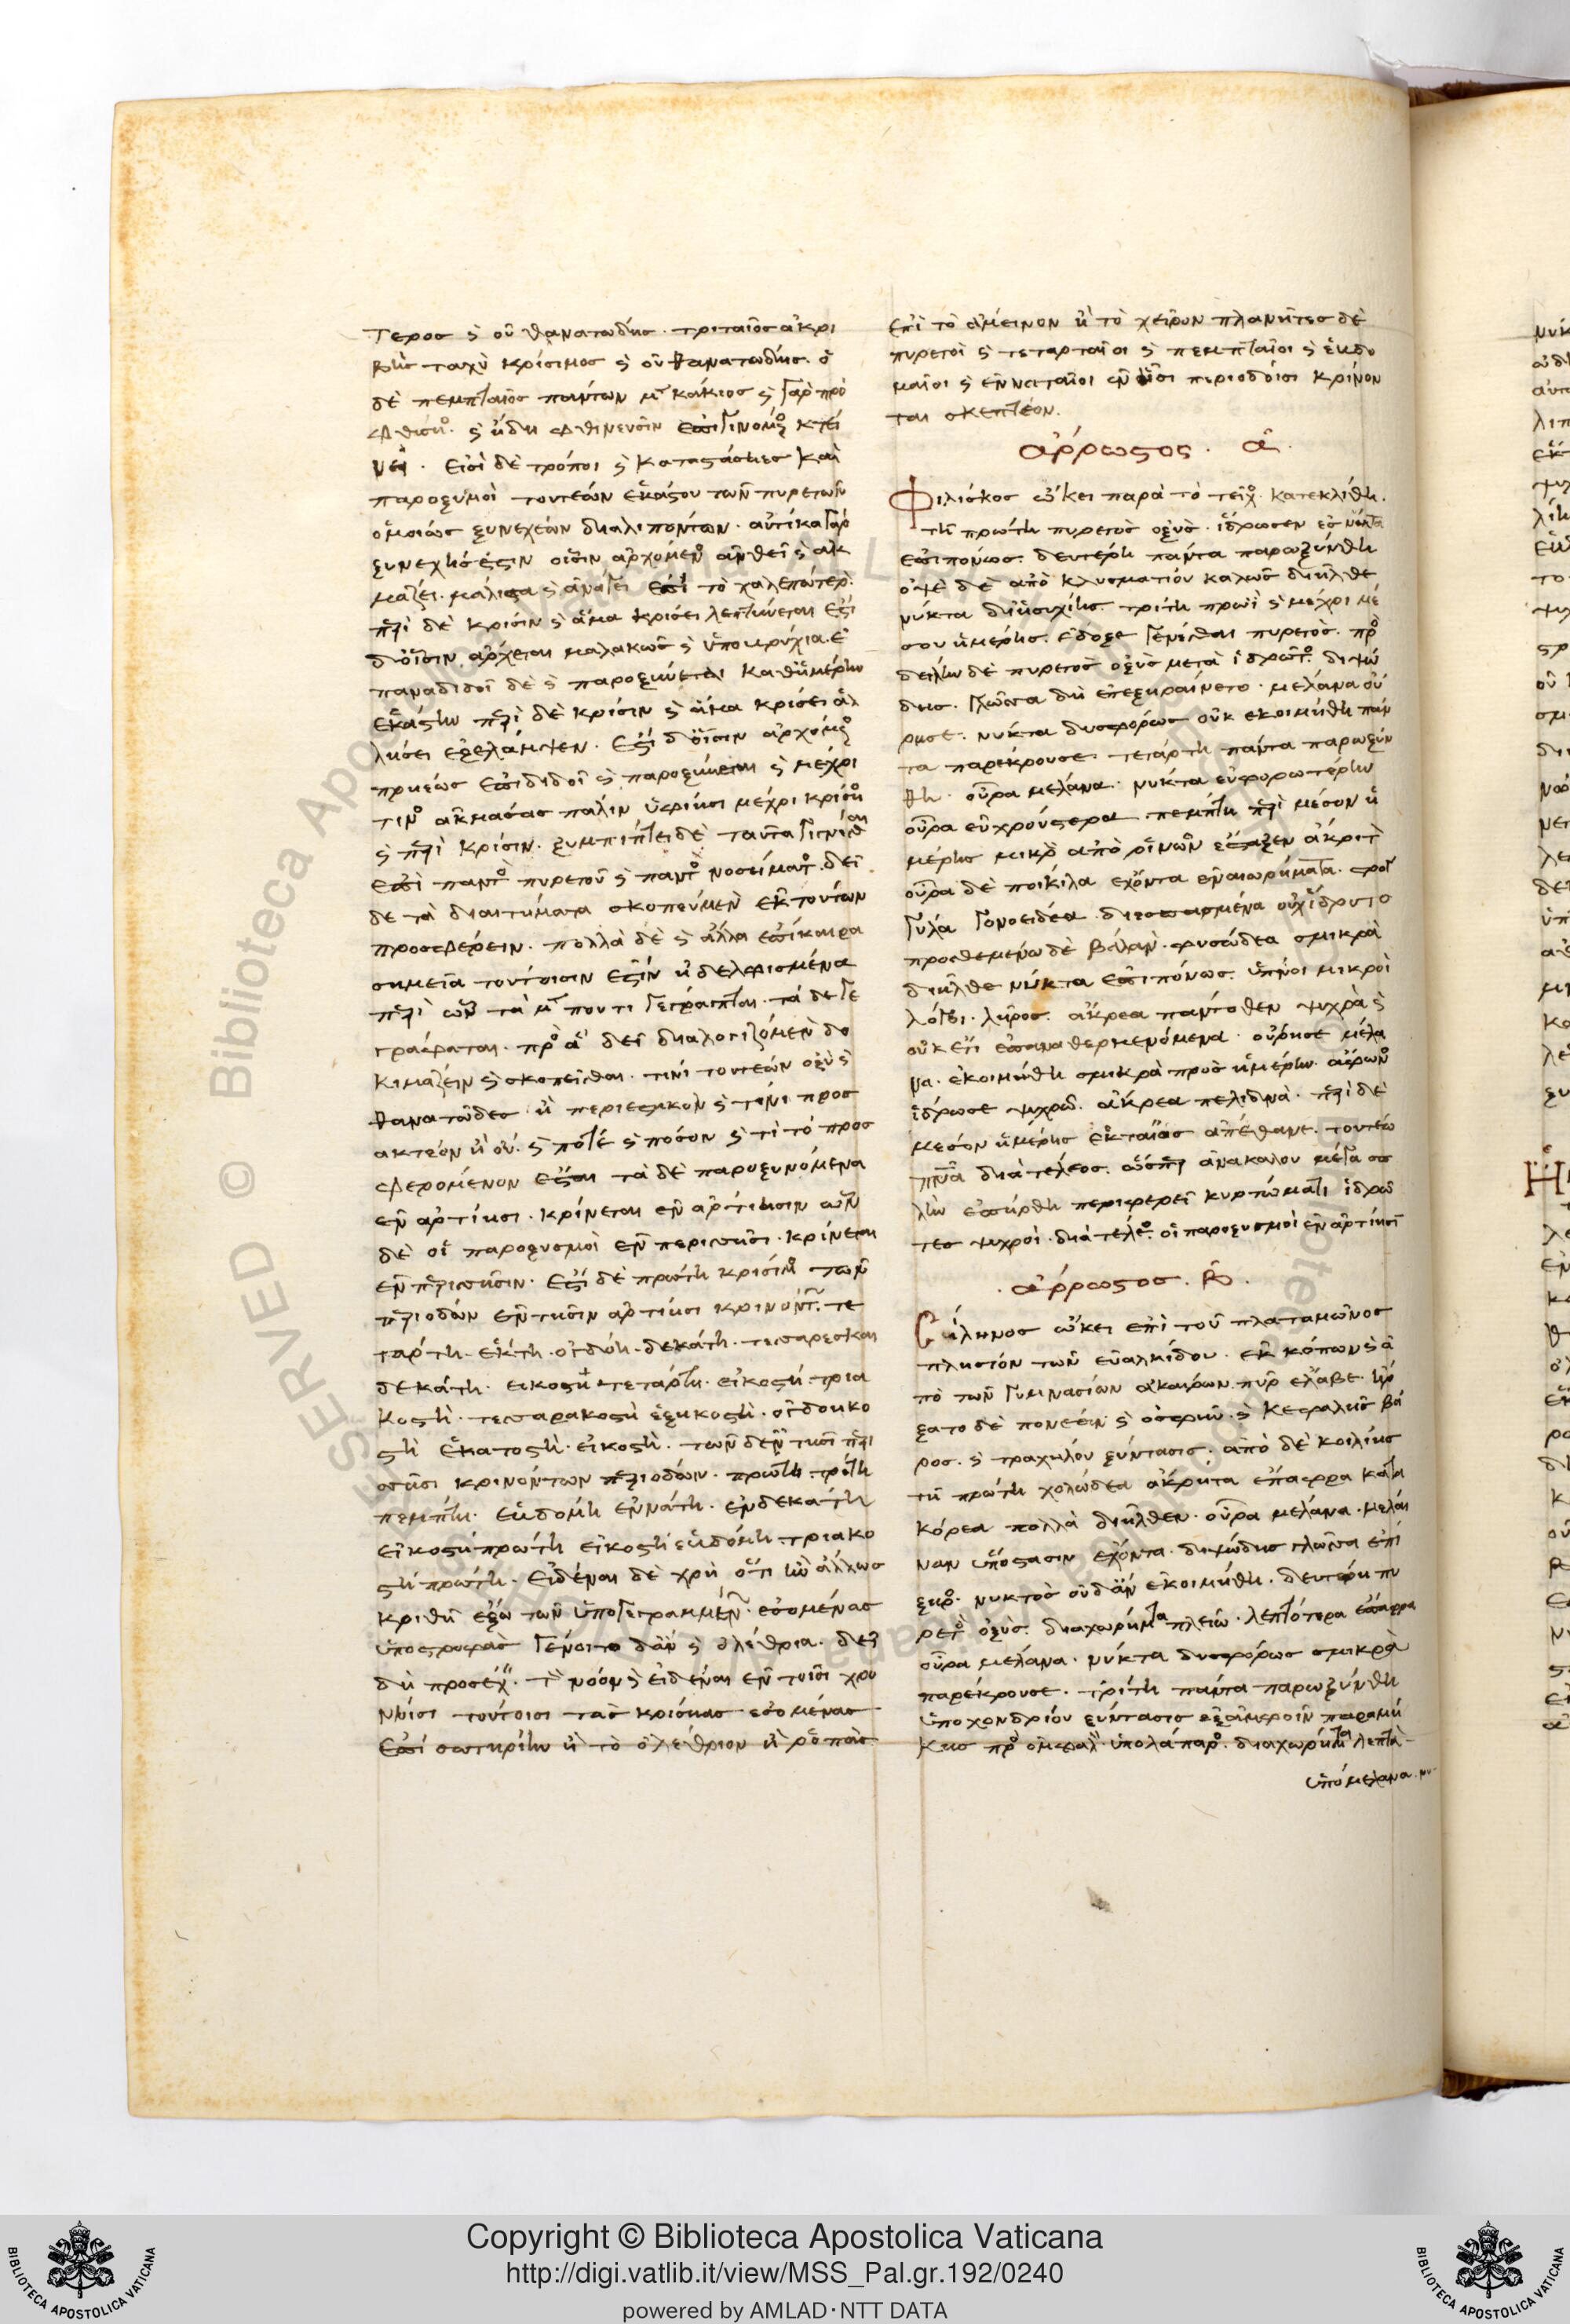 τερος ϗ οὐ θανατώδης · τριταῖος ἀκρι
βὴς ταχὺ κρίσιμος ϗ οὐ θανατώδης. ὁ
δὲ πεμπταῖος πάντων κάκιος ϗ γὰρ πρὸ
εἰσὶ δὲ τρόποι ϗ καταστάσιες καὶ
παροξυσμοὶ τουτέων ἑκάστου τῶν πυρετῶν
ὁμοίως ξυνεχέων διαλιπόντων · αὐτίκα γὰρ
ξυνεχὴς ἔστιν οἷσιν ἀρχόμεν ἀνθεῖ ϗ ἀκ
μάζει · μάλιστα ϗ ἀνάγει ἐπὶ τὸ χαλεπώτερ
περὶ δὲ κρίσιν ϗ ἅμα κρίσει λεπτύνεται ἔστι
δ οἷσιν ἄρχεται μαλακῶς ϗ ὑποβρύχια. ἐ
παναδιδοῖ δὲ ϗ παροξύνεται καθ ἡμέρην
ἑκάστην περὶ δὲ κρίσιν ϗ ἅμα κρίσει ἅλ
λησει ἐξελάμψεν · ἔστι δ οἷσιν ἀρχόμ
πρηέως ἐπιδιδοῖ ϗ παροξύνεται ϗ μέχρι
τιν ἀκμάσας πάλιν ὑφίησι μέχρι κρίσι
ϗ περὶ κρίσιν · ξυμπίπτει δὲ ταῦτα γίγνεσθαι
ἐπὶ παντ πυρετοῦ ϗ παντ νοσήματ · δεῖ
δὲ τὰ διαιτήματα σκοπεύμεν ἐκ τουτέων
προσφέρειν · πολλὰ δὲ ϗ ἄλλα ἐπίκαιρα
σημεῖα τουτέοισιν ἐστὶν ἠδελφισμένα
περὶ ὧν τὰ μ που τι γέγραπται · τὰ δὲ γε
γράφεται · πρὸς ἃ δεῖ διαλογιζόμεν δο
κιμάζειν ϗ σκοπεῖσθαι · τίνι τουτέων ὀξὺ ϗ
θανατῶδες ἢ περιεστικὸν ϗ τίνι προσ
ακτέον ἢ οὔ · ϗ πότε ϗ πόσον ϗ τί τὸ προσ
φερόμενον ἔσται τὰ δὲ παροξυνόμενα
ἐν ἀρτίησι · κρίνεται ἐν ἀρτίησιν ὧν
δὲ οἱ παροξυσμοὶ ἐν περισσῇσι · κρίνεται
ἐν περισσῇσιν · ἔστι δὲ πρώτη κρίσιμ τῶν
περιόδων ἐν τῇσιν ἀρτίησι κρινόντ · τε
τάρτη · ἕκτη · ὀγδόη · δεκάτη · τεσσαρεσκαι
δεκάτη · εἰκοστὴ τετάρτη · εἰκοστή · τρια
κοστὴ · τεσσαρακοστὴ ἑξηκοστὴ · ὀγδοηκο
στὴ ἑκατοστὴ · εἰκοστὴ · τῶν δ ἐν τῇσι περι
σσῇσι κρινόντων περιόδων · πρώτη · τρίτη
πέμπτη · ἑβδόμη ἐννάτη · ἑνδεκάτη
εἰκοστὴ πρώτη εἰκοστὴ ἑβδόμη · τριακο
στὴ πρώτη · εἰδέναι δὲ χρὴ ὅτι ἢν ἄλλως
κριθῇ ἔξω τῶν ὑπογεγραμμέν · ἐσομένας
ὑποστροφὰς γένοιτο δ ἂν ϗ ὀλέθρια · δεῖ
δὴ προσέχ · τὸν νόον ϗ εἰδέναι ἐν τοῖσι χρό
νοισι τούτοισι τὰς κρίσιας ἐσομένας
ἐπὶ σωτηρίην ἢ τὸ ὀλέθριον ἢ ῥοπὰς
ἐπὶ τὸ ἄμεινον ἢ τὸ χεῖρον πλάνητες δὲ
πυρετοὶ ϗ τεταρταῖοι ϗ πεμπταῖοι ϗ ἑβδο
μαῖοι ϗ ἐνναταῖοι ἐν ᾗσι περιόδοισι κρίνον
ται σκεπτέον.
ἄρρωστος · α
Φιλίσκος ᾤκει παρὰ τὸ τεῖχος · κατεκλίθη ·
τῇ πρώτῃ πυρετὸς ὀξὺς · ἵδρωσεν ἐς νύκτα
ἐπιπόνως · δευτέρη πάντα παρωξύνθη
ὀψὲ δὲ ἀπὸ κλυσματίου καλῶς διῆλθε
νύκτα δι ἡσυχίης. τρίτη πρωῒ ϗ μέχρι μέ
σου ἡμέρης · ἔδοξε γενέσθαι πυρετὸς · πρὸς
δείλην δὲ πυρετὸς ὀξὺς μετὰ ἱδρῶτος · διψώ
δης · γλῶσσα δὴ ἐπεξηραίνετο · μέλανα οὔ
ρησε · νύκτα δυσφόρως οὐκ ἐκοιμήθη πάν
τα παρέκρουσε · τετάρτη πάντα παρωξύν
θη · οὖρα μέλανα · νύκτα εὐφορωτέρην
οὖρα εὐχρούστερα · πέμπτη περὶ μέσον ἡ
μέρης μικρὸν ἀπὸ ῥινῶν ἔσταξεν ἄκρητ
οὖρα δὲ ποικίλα ἔχοντα ἐναιωρήματα · στρογ
γύλα γονοειδέα διεσπασμένα οὐχ ἵδρυτο
προσθεμένω δὲ βάλαν · φυσώδεα σμικρὰ
διῆλθε νύκτα ἐπιπόνως · ὕπνοι μικροὶ
λόγοι · λῆρος · ἄκρεα πάντοθεν ψυχρὰ ϗ
οὐκ ἔτι ἐπαναθερμενόμενα · οὔρησε μέλα
να · ἐκοιμήθη σμικρὰ πρὸς ἡμέρην · ἄφων
ἵδρωσε ψυχρῶ · ἄκρεα πελιδνὰ · περὶ δὲ
μέσον ἡμέρης ἑκταῖος ἀπέθανε · τουτέω
πνεῦμα διὰ τέλεος · ὥσπερ ἀνακαλου μέγα σπ
λὴν ἐπήρθη περιφερεῖ κυρτώματι ἱδρῶ
τες ψυχροὶ · διὰ τέλε · οἱ παροξυσμοὶ ἐν ἀρτίησι
· ἄρρωστος · β ·
Σιληνὸς ᾤκει ἐπὶ τοῦ πλαταμῶνος
πλησίον τῶν εὐαλκίδου · ἐκ κόπων ϗ ἀ
πὸ τῶν γυμνασίων ἀκαίρων πῦρ ἔλαβε · ἤρ
ξατο δὲ πονέειν ϗ ὀσφὺν · ϗ κεφαλῆς βά
ρος · ϗ τραχήλου ξύντασις · ἀπὸ δὲ κοιλίης
τῇ πρώτη χολώδεα ἄκρητα ἔπαφρα κατα
κόρεα πολλὰ διῆλθεν · οὖρα μέλανα · μέλαι
ναν ὑπόστασιν ἔχοντα · διψώδης γλῶσσα ἐπί
ξηρ · νυκτὸς οὐδὲν ἐκοιμήθη · δευτέρη πυ
ρετ ὀξὺς · διαχωρήματα πλείω · λεπτότερα ἔπαφρα
οὖρα μέλανα · νύκτα δυσφόρως σμικρὰ
παρέκρουσε · τρίτη πάντα παρωξύνθη
ὑποχονδρίου ξύντασις ἐξ ἀμφοῖν παραμή
κης πρὸς ὀμφαλ ὑπολάπαρος · διαχωρήματα λεπτὰ
ὑπομέλανα
Copyright © Biblioteca Apostolica Vaticana
http://digi.vatlib.it/view/MSS_Pal.gr.192/0240
powered by AMLAD·NTT DATA
BIBLIOTECA APOSTOLICA VATICANA
BIBLIOTECA APOSTOLICA VATICANA